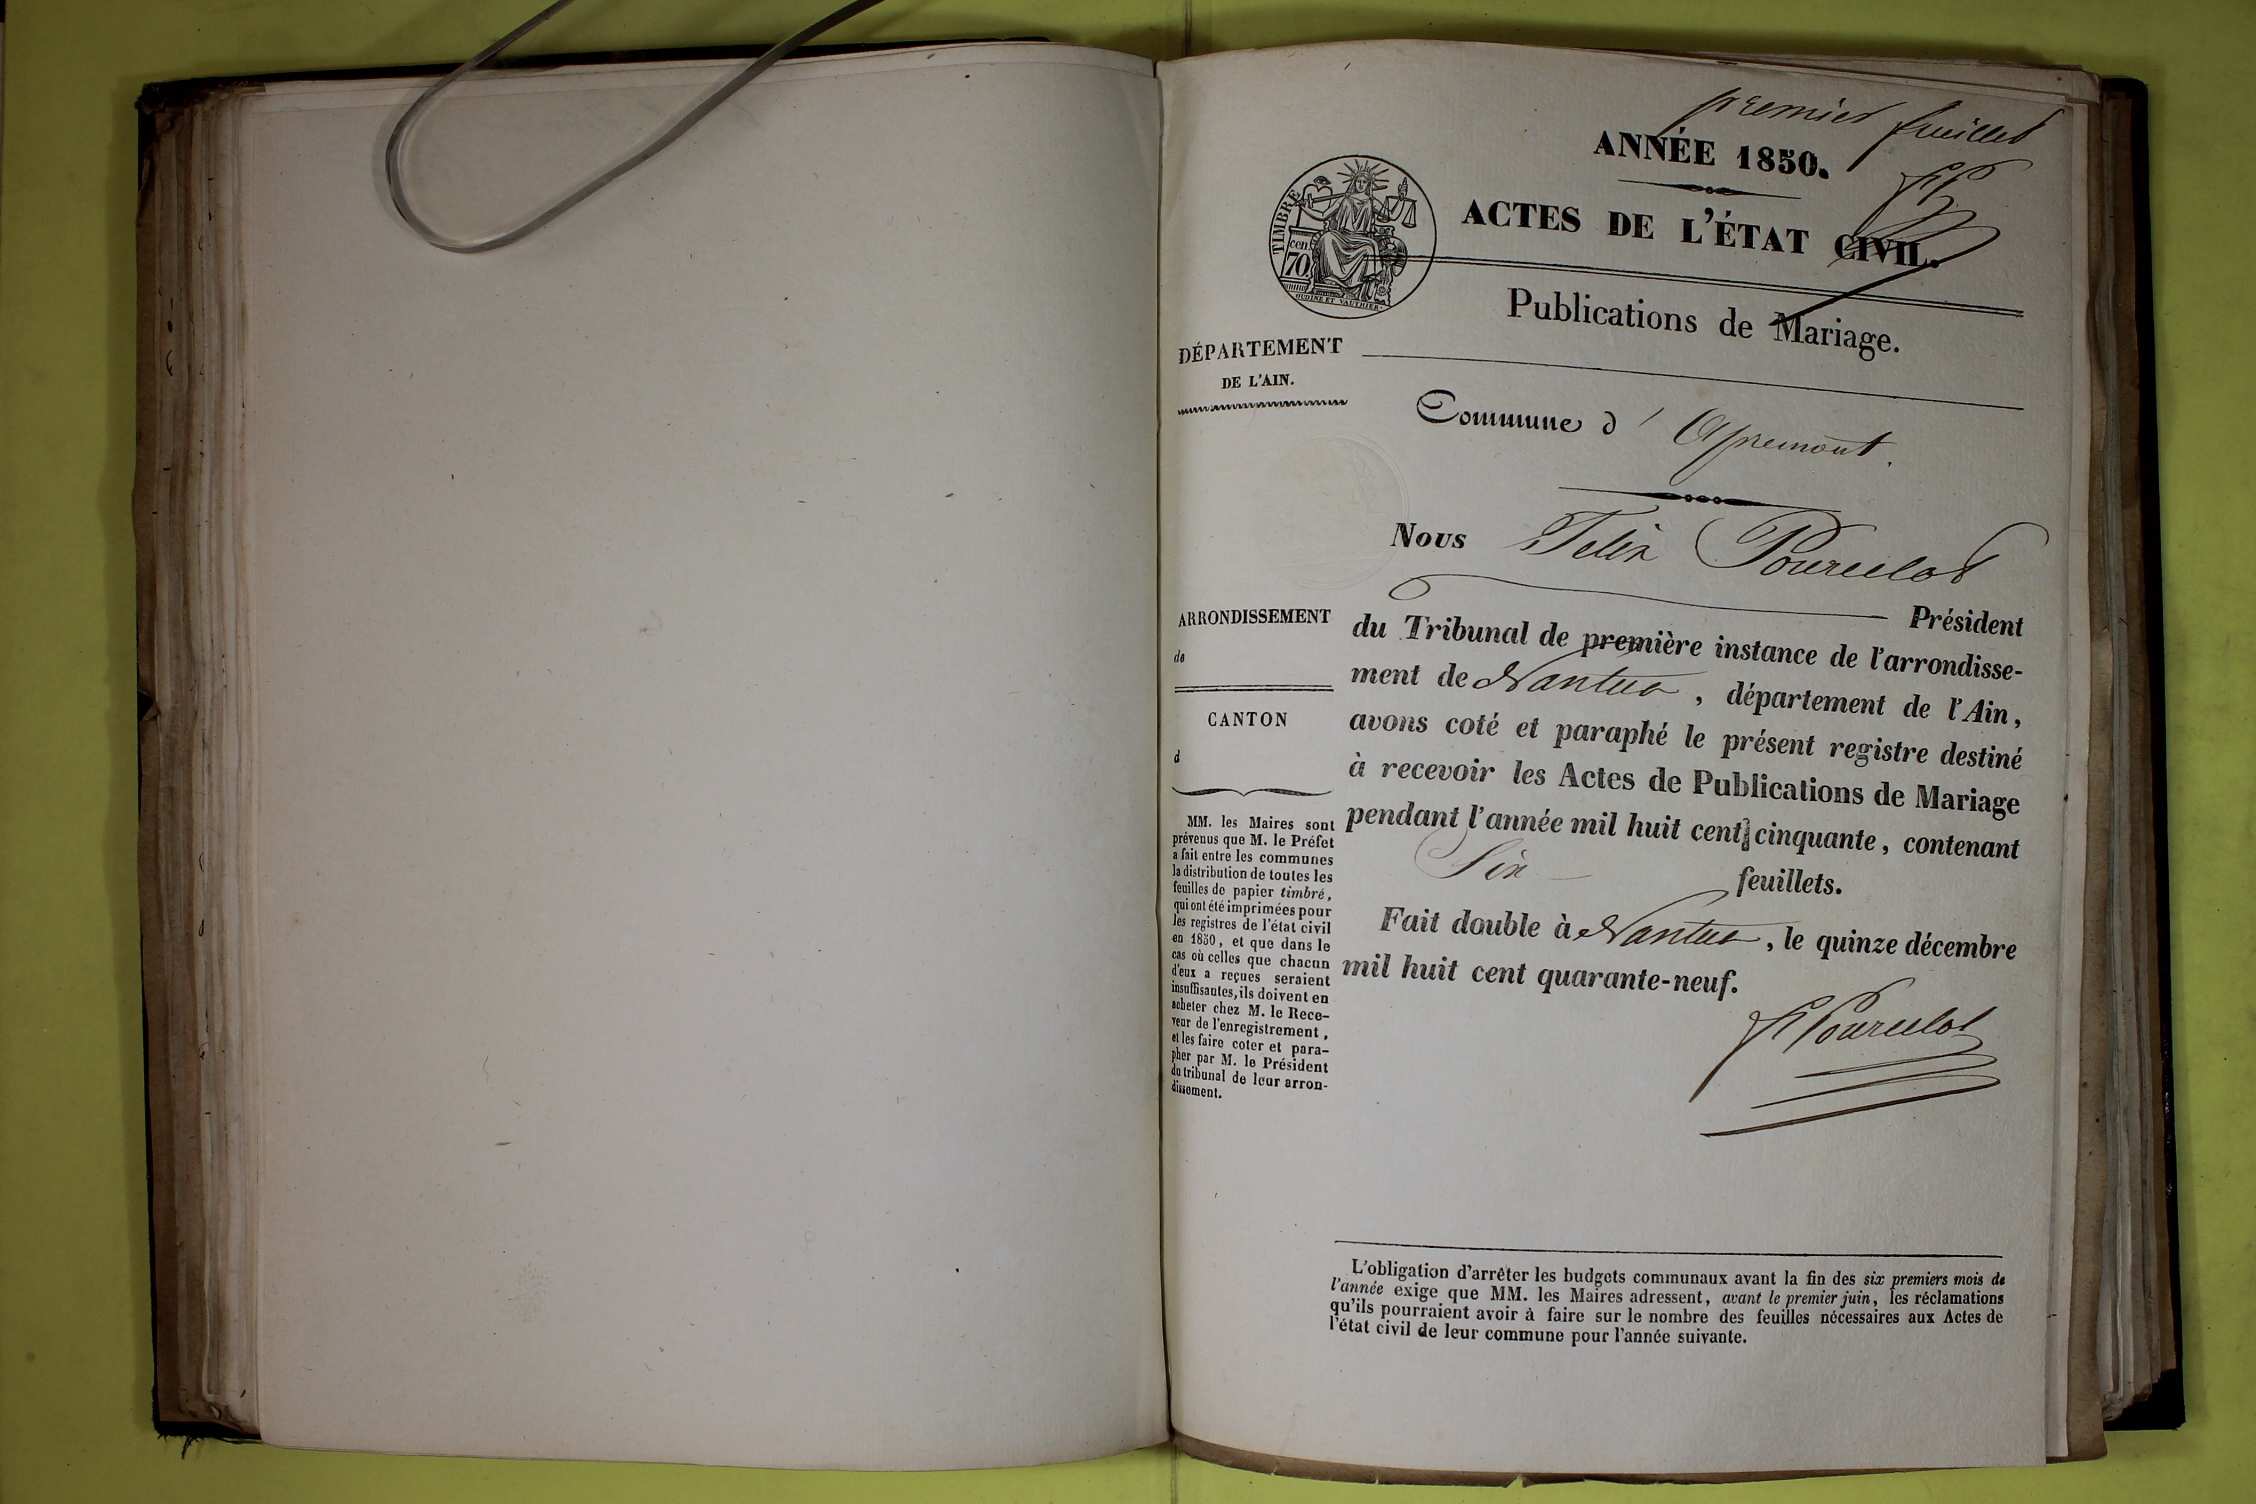 premier feuillet
ANNÉE 1850.
ACTES DE L'ÉTAT CIVIL.
TIMBRE
cen.
70.
OUDINÉ ET VAUTHIER.
Publications de Mariage.
DÉPARTEMENT
DE L'AIN.
Commune d' Apremont.
Nous Felix Pourcelot
Président
du Tribunal de première instance de l'arrondisse-
ment de Nantua, département de l'Ain,
avons coté et paraphé le présent registre destiné
à recevoir les Actes de Publications de Mariage
pendant l'année mil huit cent cinquante, contenant
Six feuillets.
Fait double à Nantua, le quinze décembre
mil huit cent quarante-neuf.
Pourcelot
ARRONDISSEMENT
de
CANTON
d
MM. les Maires sont
prévenus que M. le Préfet
a fait entre les communes
la distribution de toutes les
feuilles de papier timbré,
qui ont été imprimées pour
les registres de l'état civil
en 1850, et que dans le
cas où celles que chacun
d'eux a reçues seraient
insuffisantes, ils doivent en
acheter chez M. le Rece-
veur de l'enregistrement,
et les faire coter et para-
pher par M. le Président
du tribunal de leur arron-
dissement.
L'obligation d'arrêter les budgets communaux avant la fin des six premiers mois de
l'année exige que MM. les Maires adressent, avant le premier juin, les réclamations
qu'ils pourraient avoir à faire sur le nombre des feuilles nécessaires aux Actes de
l'état civil de leur commune pour l'année suivante.